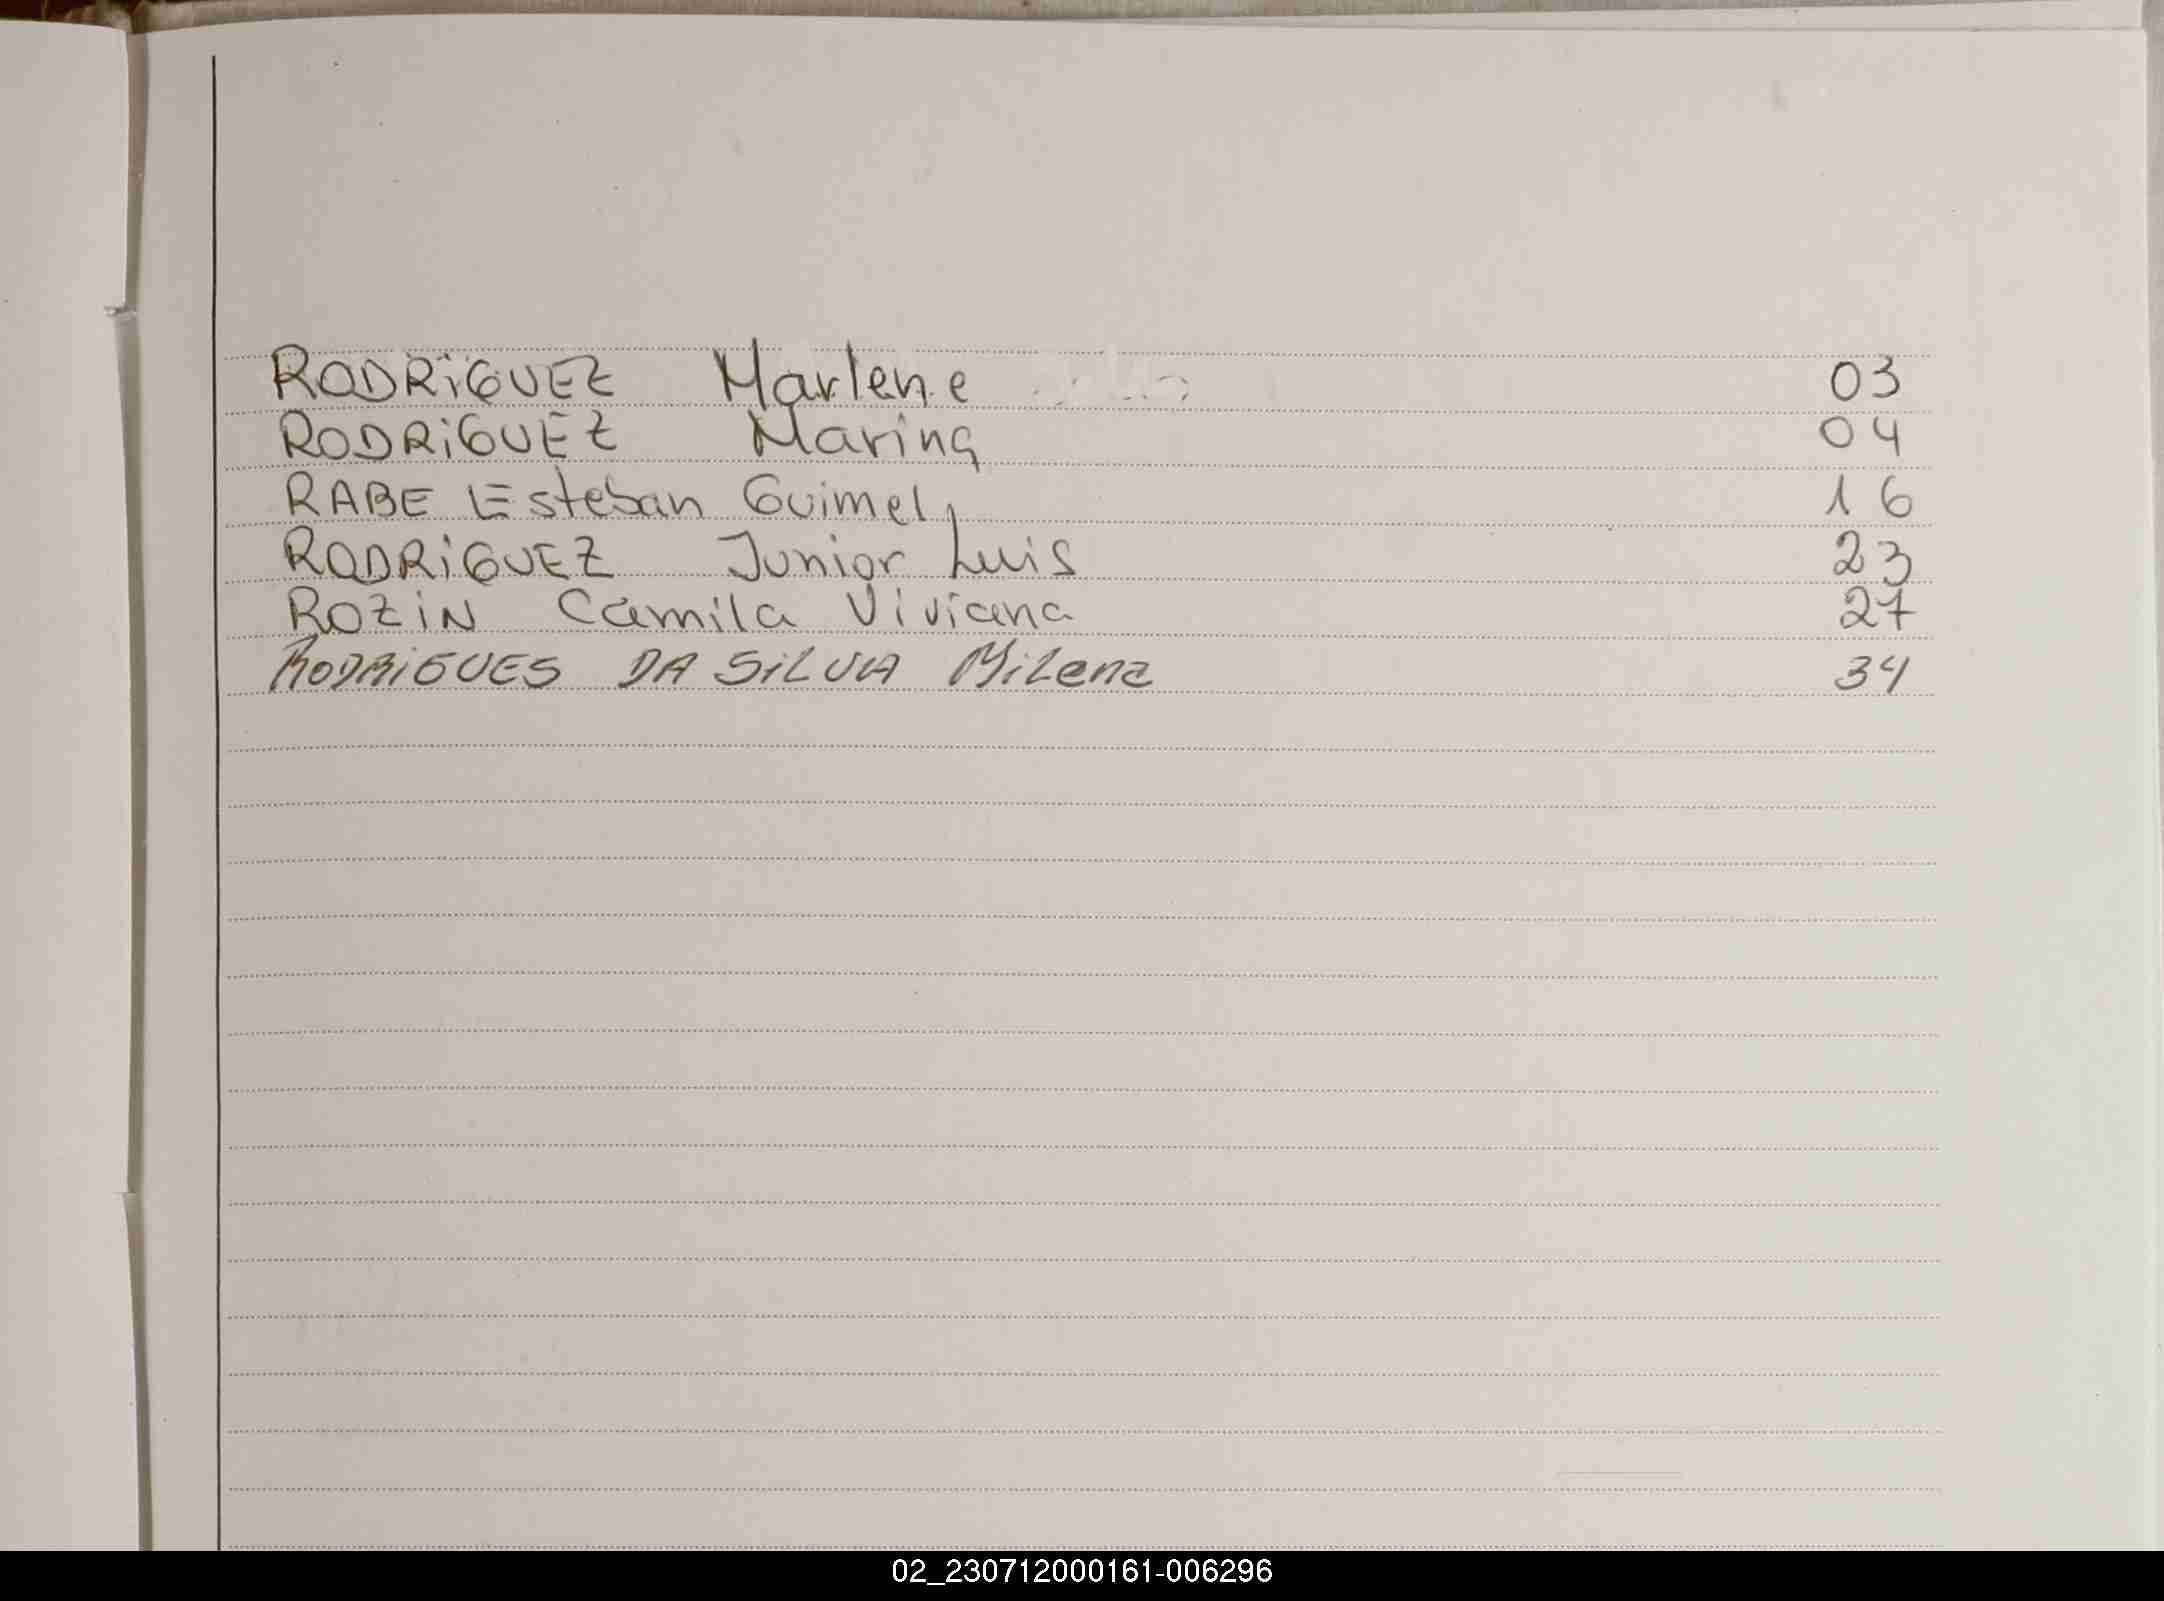 RODRIGUEZ Marlene 03
RODRIGUEZ Marina 04
RABE Esteban Guimel 16
RODRIGUEZ Junior Luis 23
ROZIN Camila Viviana 27
RODRIGUES DA SILVA Milena 34
02_230712000161-006296